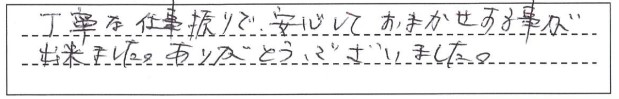 丁寧な仕事振りで、安心しておまかせする事が
出来ました。ありがとうございました。